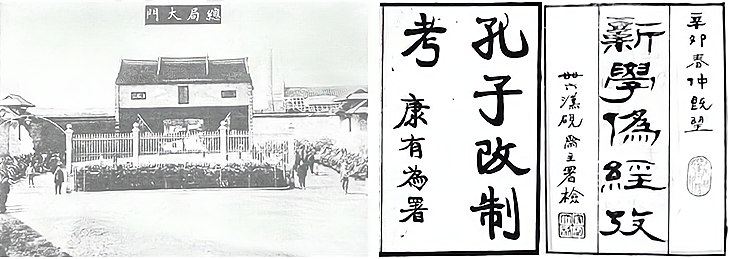 總局大門
孔子改制
考
康有為署
辛卯春仲既望
新學偽經攷
漢硯齋主署檢